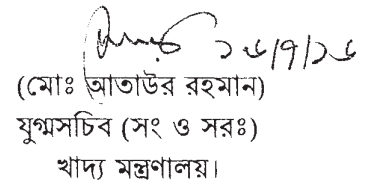 ১৬/৭/১৬
(মোঃ আতাউর রহমান)
যুগ্মসচিব (সং ও সরঃ)
খাদ্য মন্ত্রণালয়।